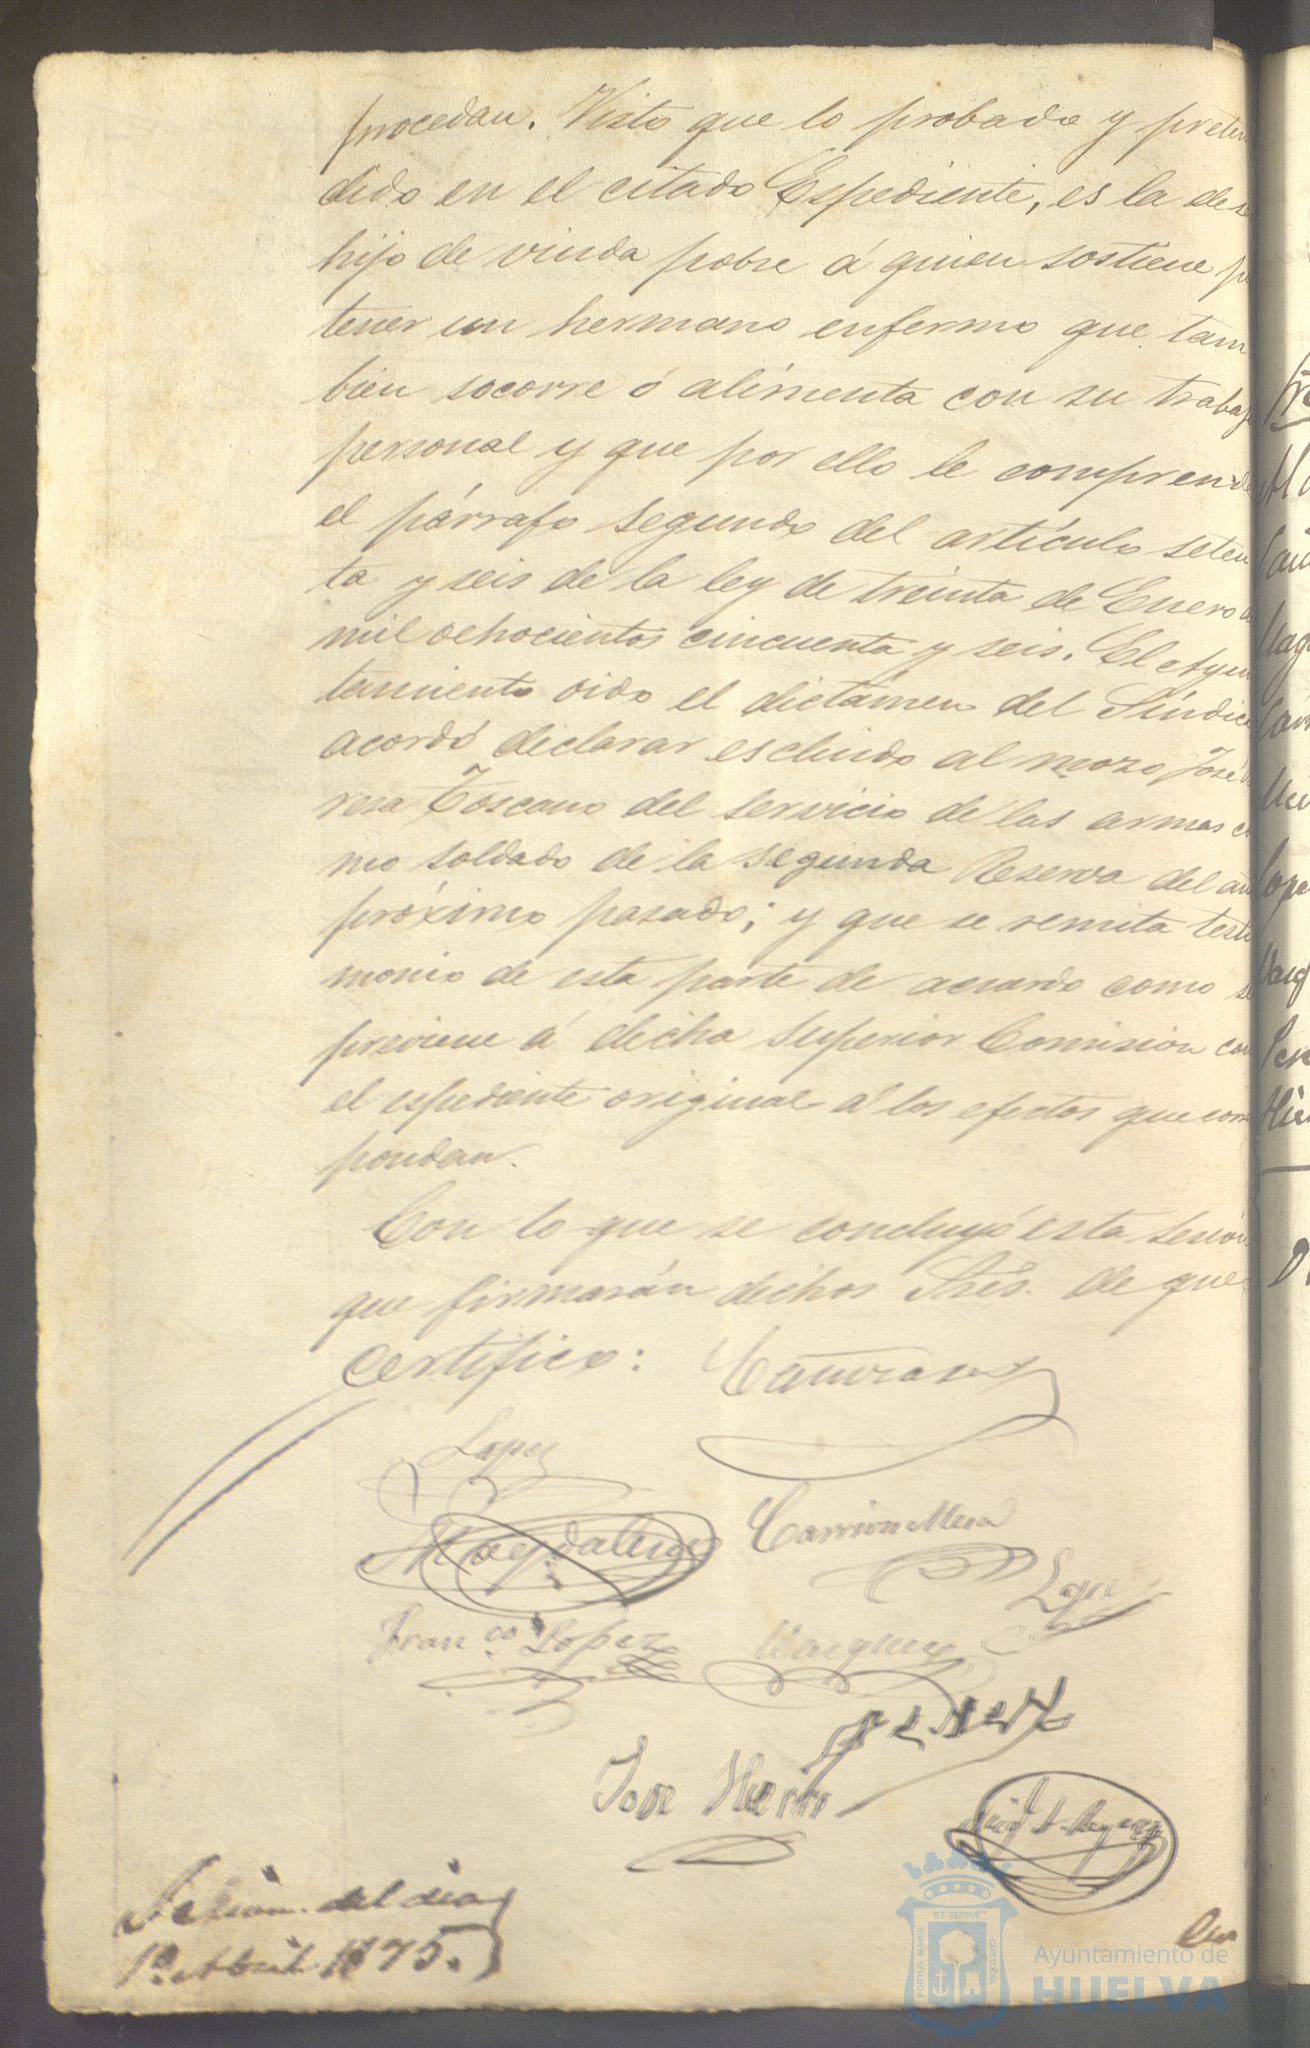 procedan. Visto que lo probado y preten
dido en el citado Espediente, es la de se
hijo de viuda pobre á quien sostiene p
tener un hermano enfermo que tam
bien socorre ó alimenta con su trabajo
personal y que por ello le comprende
el párrafo segundo del artículo seten
ta y seis de la ley de treinta de Enero d
mil ochocientos cincuenta y seis. El Ayun
tamiento oido el dictámen del Síndico
acordó declarar escluido al mozo José
reza Toscano del servicio de las armas co
mo soldado de la segunda Reserva del añ
próximo pasado; y que se remita testi
monio de esta parte de acuerdo como se
previene á dicha superior Comision con
el espediente original á los efectos que corres
pondan.
Con lo que se concluyó esta sesión
que firmarán dichos Sres. de que
certifico:
Lopez
Magdalena Carrion Mesa
Lopez
Franco Lopez Vazquez
Jose
Sesion del dia
1º Abril 1875.
En
PORTUS MARIS ET TERRÆ CUSTODIA
Ayuntamiento de
HUELVA